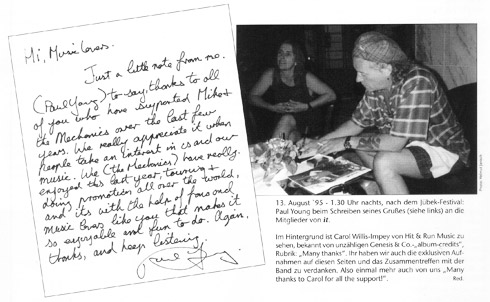 Hi, Music lovers.
Just a little note from me.
(Paul Young) to say, thanks to all
of you who have supported Mike +
the Mechanics over the last few
years. We really appreciate it when
people take an interest in us and our
music. We (the Mechanics) have really
enjoyed this last year, touring +
doing promotion all over the world,
and its with the help of fans and
music lovers like you that makes it
so enjoyable and fun to do. Again,
thanks, and keep listening.
Paul Young
13. August '95 - 1.30 Uhr nachts, nach dem Jübek-Festival:
Paul Young beim Schreiben seines Grußes (siehe links) an die
Mitglieder von it.
Im Hintergrund ist Carol Willis-Impey von Hit & Run Music zu
sehen, bekannt von unzähligen Genesis & Co.-„album-credits",
Rubrik: „Many thanks". Ihr haben wir auch die exklusiven Auf-
nahmen auf diesen Seiten und das Zusammentreffen mit der
Band zu verdanken. Also einmal mehr auch von uns „Many
thanks to Carol for all the support!".
Red.